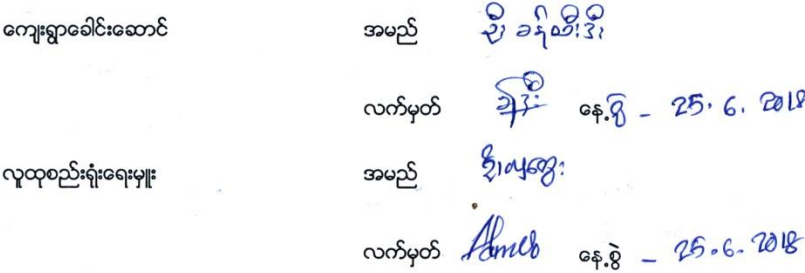 ကျေးရွာခေါင်းဆောင် အမည် ဦးခန်ထီးဒီး
လက်မှတ် နေ့စွဲ - 25.6.2018
လူထုစည်းရုံးရေးမှူး အမည် ဦးလှထွေး
လက်မှတ် နေ့စွဲ - 25.6.2018